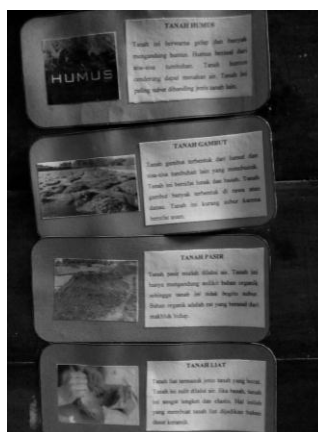 TANAH HUMUS
Tanah ini berwarna gelap dan banyak
mengandung humus. Humus berasal dari
sisa-sisa tumbuhan. Tanah humus
cenderung dapat menahan air. Tanah ini
paling subur dibanding jenis tanah lain.
HUMUS
TANAH GAMBUT
Tanah gambut terbentuk dari lumut dan
sisa-sisa tumbuhan lain yang membusuk.
Tanah ini bersifat lunak dan basah. Tanah
gambut banyak terbentuk di rawa atau
danau. Tanah ini kurang subur karena
bersifat asam.
TANAH PASIR
Tanah pasir mudah dilalui air. Tanah ini
hanya mengandung sedikit bahan organik
sehingga tanah ini tidak begitu subur.
Bahan organik adalah zat yang berasal dari
makhluk hidup.
TANAH LIAT
Tanah liat termasuk jenis tanah yang berat.
Tanah ini sulit dilalui air. Jika basah, tanah
ini sangat lengket dan elastis. Hal inilah
yang membuat tanah liat dijadikan bahan
dasar keramik.